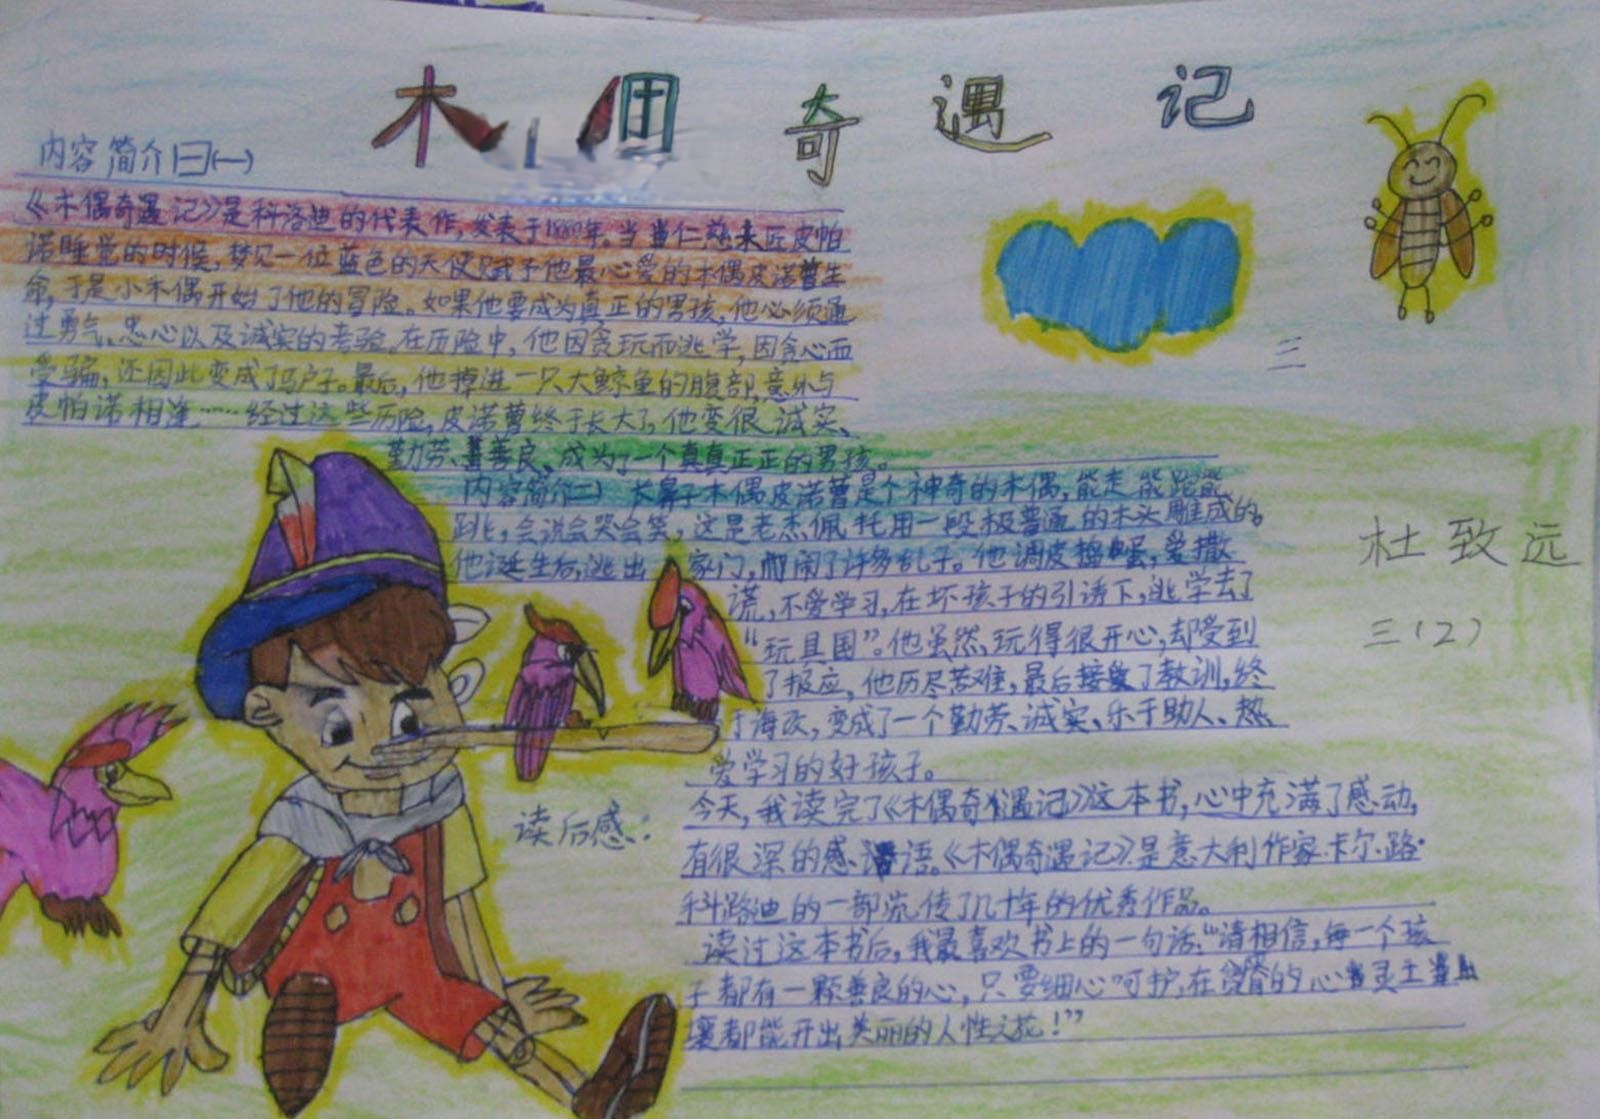 木偶奇遇记
内容简介(一)
《木偶奇遇记》是科洛迪的代表作,发表于1880年。当仁慈木匠皮帕
诺睡觉的时候,梦见一位蓝色的天使赋予他最心爱的木偶皮诺曹生
命,于是小木偶开始了他的冒险。如果他要成为真正的男孩,他必须通
过勇气、忠心以及诚实的考验。在历险中,他因贪玩而逃学,因贪心而
受骗,还因此变成了驴子。最后,他掉进一只大鲸鱼的腹部,意外与
皮帕诺相逢……经过这些历险,皮诺曹终于长大了,他变很诚实、
勤劳、善良,成为了一个真真正正的男孩。
内容简介(二) 长鼻子木偶皮诺曹是个神奇的木偶,能走能跑能
跳,会说会哭会笑,这是老杰佩托用一段极普通的木头雕成的。
他诞生后,逃出家门,闹了许多乱子。他调皮捣蛋,爱撒
谎,不爱学习,在坏孩子的引诱下,逃学去了
“玩具国”。他虽然玩得很开心,却受到
了报应,他历尽苦难,最后接受了教训,终
于海改,变成了一个勤劳、诚实、乐于助人、热
爱学习的好孩子。
读后感:
今天,我读完了《木偶奇遇记》这本书,心中充满了感动,
有很深的感语。《木偶奇遇记》是意大利作家卡尔·路·
科路迪的一部流传了几十年的优秀作品。
读过这本书后,我最喜欢书上的一句话:“请相信,每一个孩
子都有一颗善良的心,只要细心呵护,在贫瘠的心灵土
壤都能开出美丽的人性之花!”
三
杜致远
三(2)